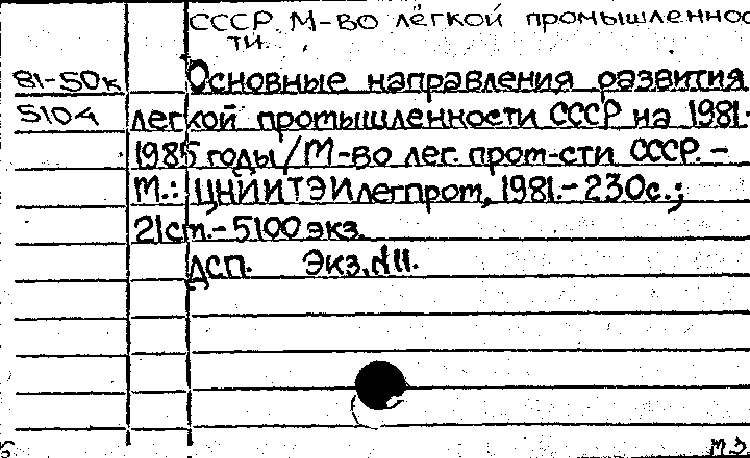 СССР. М-во лёгкой промышленнос
ти.
81-50к
5104
Основные направления развития
легкой промышленности СССР на 1981-
1985 годы/М-во лег. пром-сти СССР.-
М.: ЦНИИТЭИлегпром, 1981.- 230с.;
21см.- 5100 экз.
ДСП. Экз.№11.